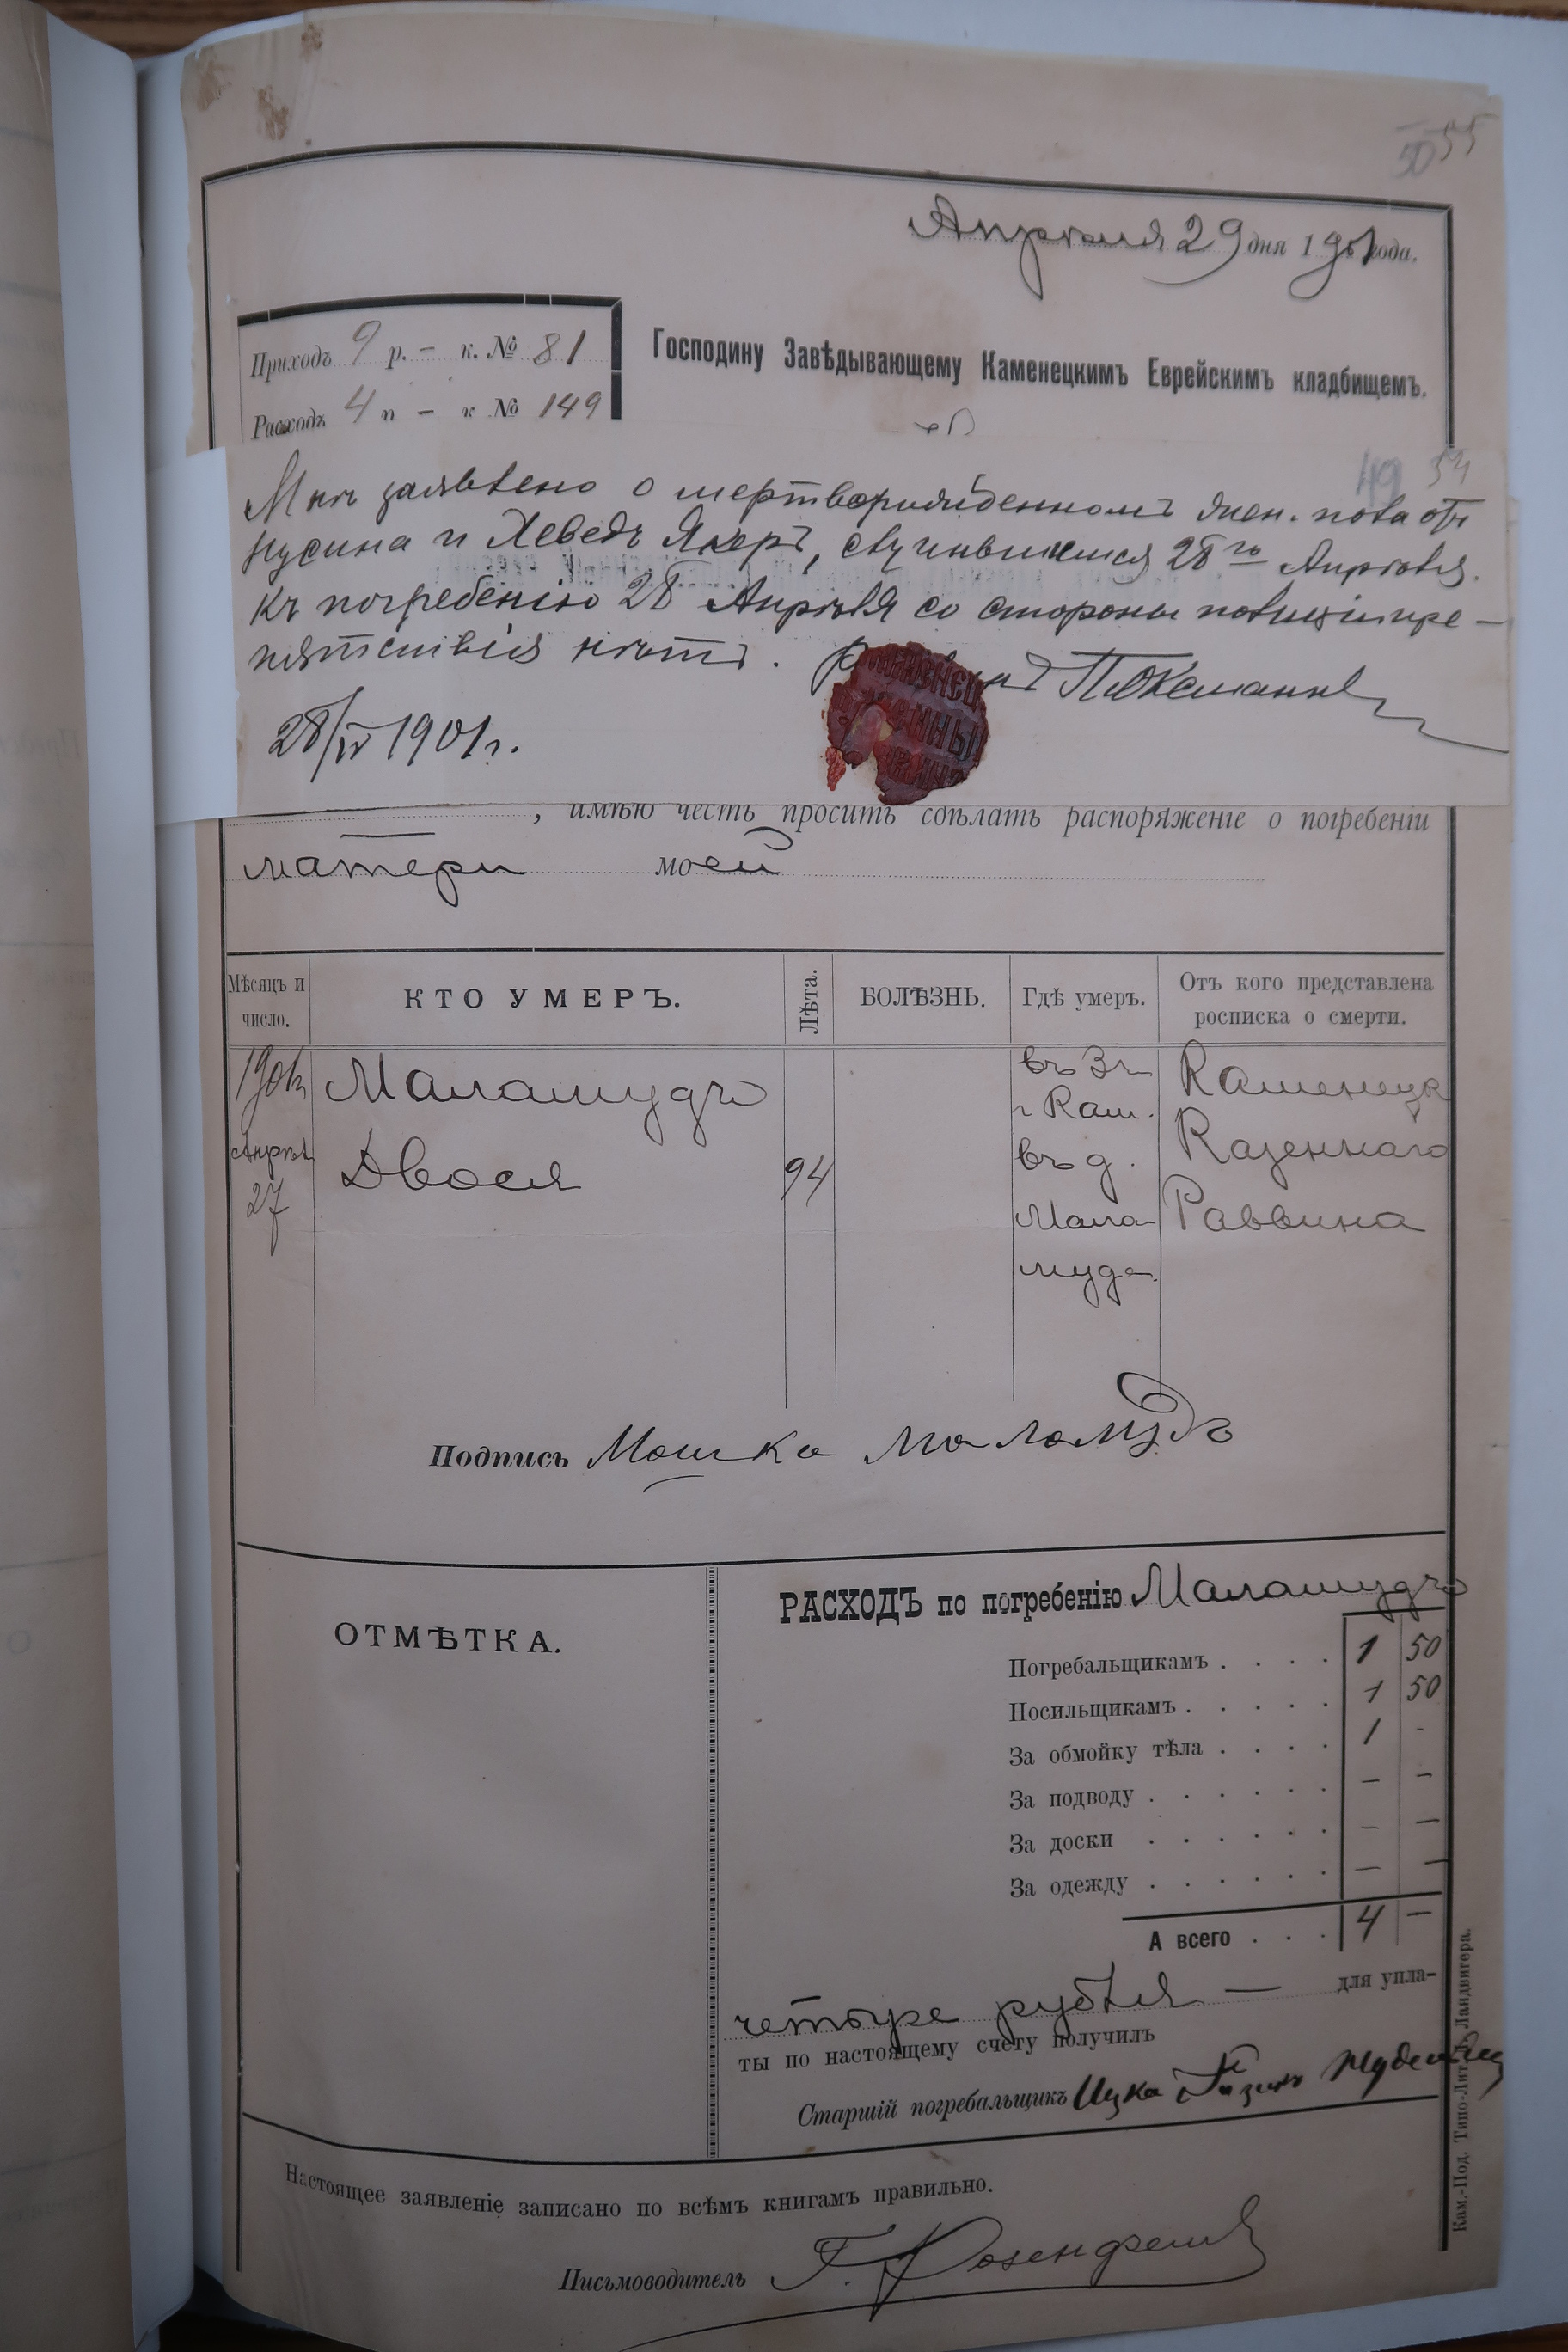 55
50
Апрѣля 29 дня 1901 года.
Приходъ 9 р. – к. № 81
Расходъ 4 р – к № 149
Господину Завѣдывающему Каменецкимъ Еврейскимъ кладбищемъ.
49 54
Мнѣ заявлено о мертворожденномъ жен. пола отъ
Нусина и Хеведъ Якеръ, случившемся 28го Апрѣля.
Къ погребенію 28 Апрѣля со стороны полиціи пре-
пятствія нѣтъ.
28/IV 1901 г.
, имѣю честь просить сдѣлать распоряженіе о погребеніи
матери моей
Мѣсяцъ и число. КТО УМЕРЪ. Лѣта. БОЛѢЗНЬ. Гдѣ умеръ. Отъ кого представлена росписка о смерти.
1901 Маламудъ въ г Кам. Каменецк
Апрѣл Двося 94 въ д. Казеннаго
27 Мала- Раввина
муда.
Подпись Мошка Маломудъ
ОТМѢТКА.
РАСХОДЪ по погребенію Маламудъ
Погребальщикамъ . . . . 1 50
Носильщикамъ . . . . . 1 50
За обмойку тѣла . . . . 1 -
За подводу . . . . . . – –
За доски . . . . . . – –
За одежду . . . . . . – –
А всего . . . 4 –
четыре рубля — для упла-
ты по настоящему счету получилъ
Старшій погребальщикъ Ицка
Настоящее заявленіе записано по всѣмъ книгамъ правильно.
Письмоводитель Г. Розенфельд
Кам.-Под. Типо-Лит. Ландвигера.